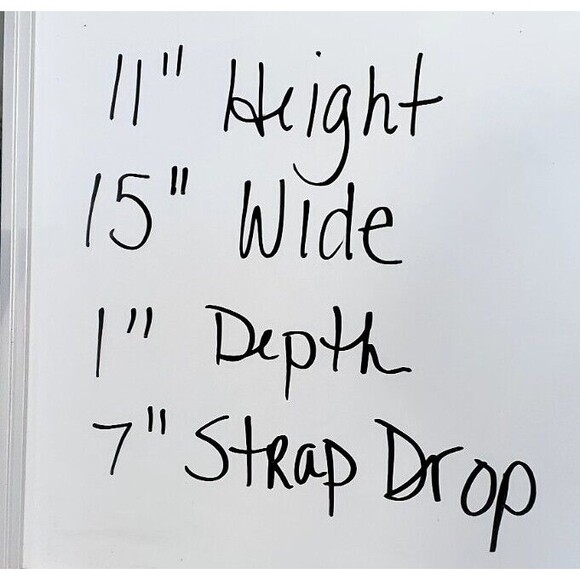 11" Height
15" Wide
1" Depth
7" Strap Drop